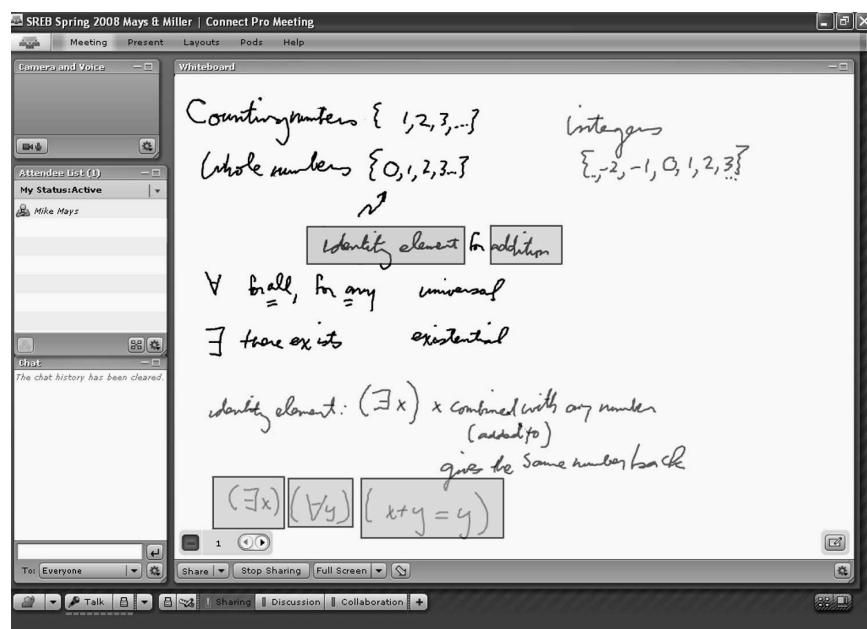 SREB Spring 2008 Mays & Miller | Connect Pro Meeting
Meeting Present Layouts Pods Help
Camera and Voice
Whiteboard
Attendee List (1)
My Status:Active
Mike Mays
Chat
The chat history has been cleared.
To: Everyone
Counting numbers { 1,2,3,...}
integers
Whole numbers {0,1,2,3...}
{..,-2,-1,0,1,2,3...}
identity element for addition
∀ for all, for any universal
∃ there exists existential
identity element: (∃x) x combined with any number
(added to)
gives the same number back
(∃x) (∀y) ( x+y = y)
1
Share Stop Sharing Full Screen
Talk Sharing Discussion Collaboration +